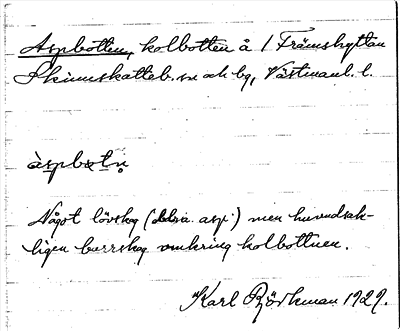 Aspbotten, kolbotten å 1 Främshyttan
Skinnskatteb. sn och bg, Västmanl. l.
àspbɷtn̥
Något lövskog (bl.a. asp) men huvudsak-
ligen barrskog omkring kolbottnen.
Karl Björkman 1929.